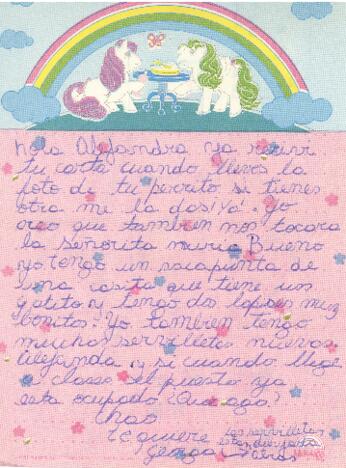 hola Alejandra ya recivi
tu carta cuando lleves la
foto de tu perrito si tienes
otra me la das ¡Ya! Yo
creo que tambien nos tocara
la Señorita nuria Bueno
yo tengo un sacapunta de
una casita que tiene un
gatito y tengo dos lapises muy
bonitos. Yo tambien tengo
muchas servilletas nuevas
Alejanda y si cuando llege
a clase el puesto ya
esta ocupado ¿Que ago?
chao
te quiere
las servilletas